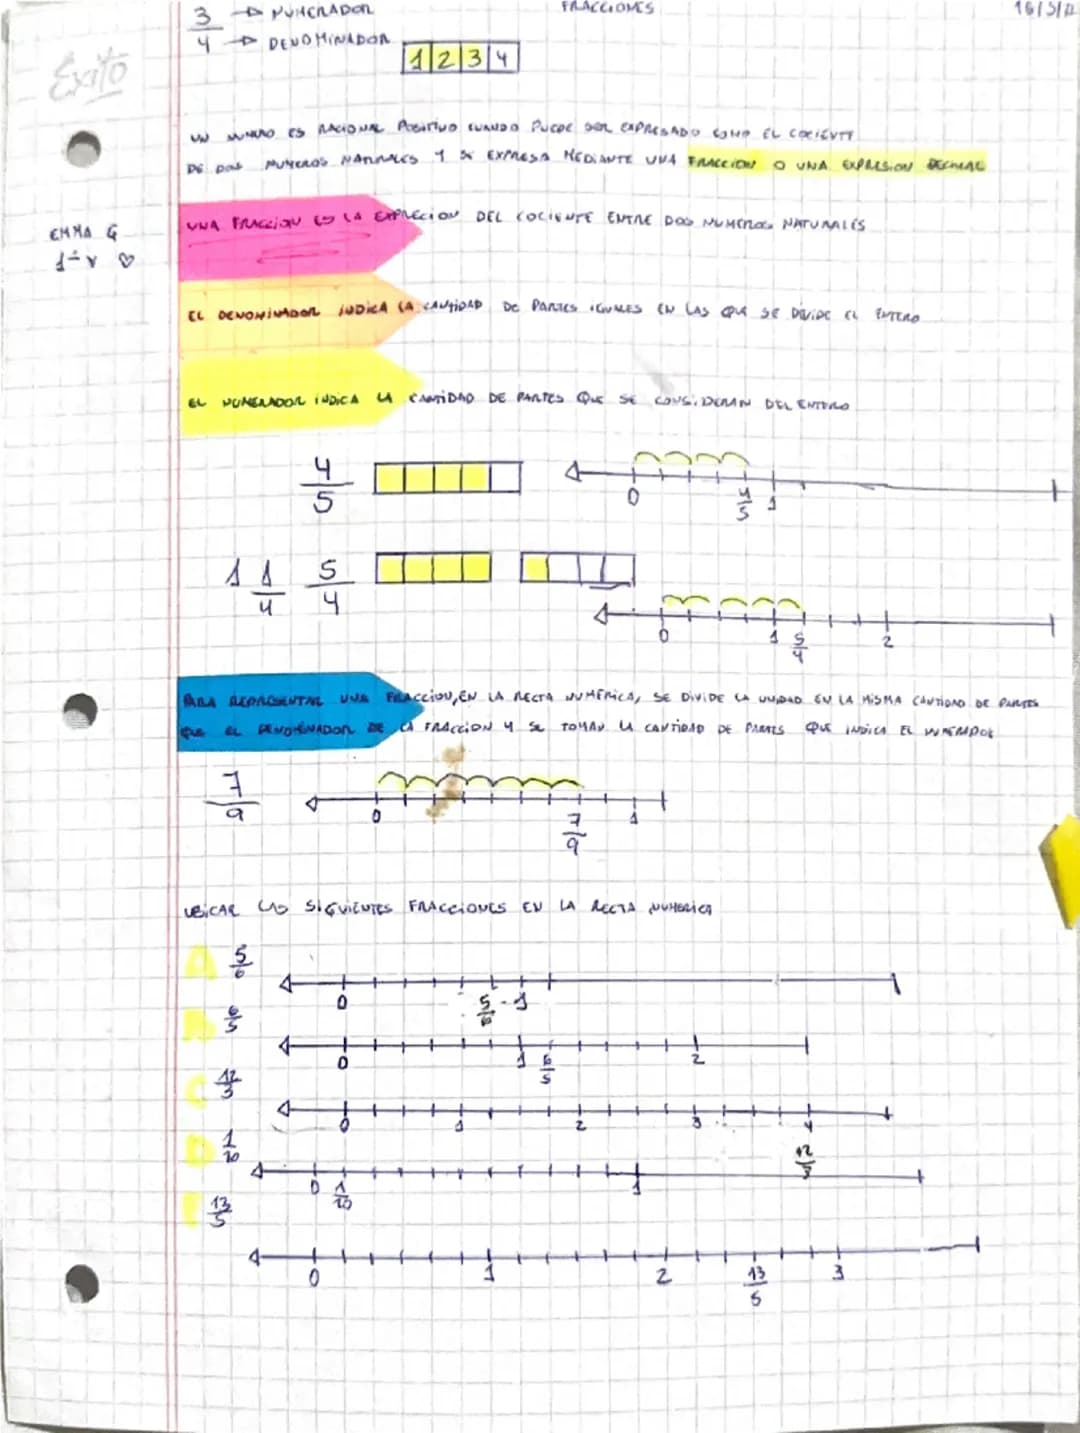 FRACCIONES
16/5/
3 → NUMERADOR
4 → DENOMINADOR
1 2 3 4
Exito
UN NUMERO ES RACIONAL POSITIVO CUANDO PUEDE SER EXPRESADO COMO EL COCIENTE
DE DOS NUMEROS NATURALES Y SE EXPRESA MEDIANTE UNA FRACCION O UNA EXPRESION DECIMAL
EMMA G
UNA FRACCION ES LA EXPRECION DEL COCIENTE ENTRE DOS NUMEROS NATURALES
EL DENOMINADOR INDICA LA CANTIDAD DE PARTES IGUALES EN LAS QUE SE DIVIDE EL ENTERO
EL NUMERADOR INDICA LA CANTIDAD DE PARTES QUE SE CONSIDERAN DEL ENTERO
4/5
0 4/5 1
1 1/4 5/4
0 1 5/4 2
PARA REPRESENTAR UNA FRACCION, EN LA RECTA NUMERICA, SE DIVIDE LA UNIDAD EN LA MISMA CANTIDAD DE PARTES
QUE EL DENOMINADOR DE LA FRACCION Y SE TOMAN LA CANTIDAD DE PARTES QUE INDICA EL
7/9
0 7/9 1
UBICAR LAS SIGUIENTES FRACCIONES EN LA RECTA NUMERICA
A 5/6
0 5/6 1
B 6/5
0 1 6/5 2
C 12/3
0 1 2 3 4
12/3
D 1/10
0 1/10 1
E 13/5
0 1 2 13/5 3